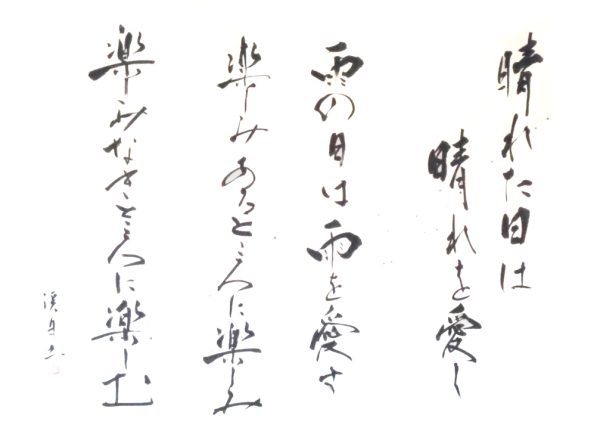 晴れた日は
晴れを愛し
雨の日は雨を愛す
楽しみあるところに楽しみ
楽しみなきところに楽しむ